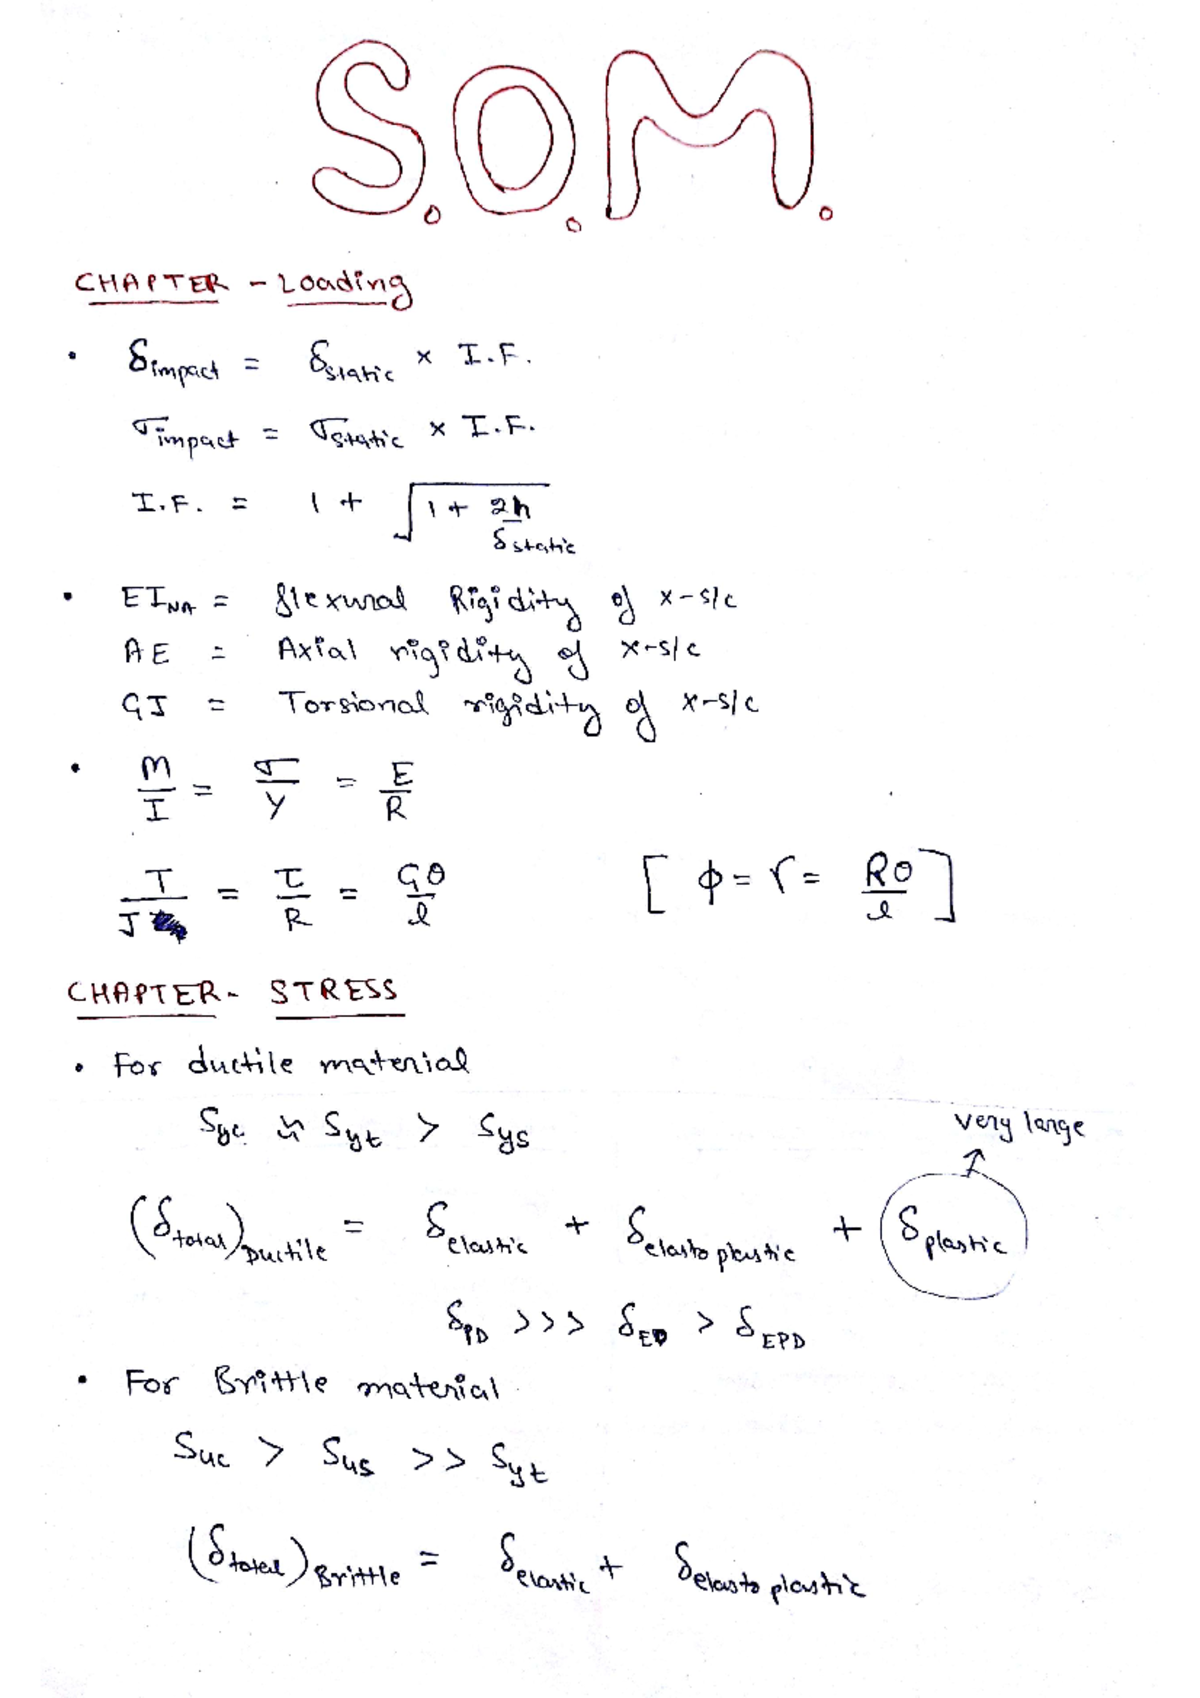 S.O.M.
CHAPTER - Loading
• δimpact = δstatic × I.F.
σimpact = σstatic × I.F.
I.F. = 1 + √(1 + 2h/δstatic)
• EI_NA = flexural Rigidity of x-s/c
AE = Axial rigidity of x-s/c
GJ = Torsional rigidity of x-s/c
• M/I = σ/Y = E/R
T/J = τ/R = Gθ/l [ϕ = r = Rθ/l]
CHAPTER - STRESS
• For ductile material
Syc ≈ Syt > Sys
very large
(δtotal)Ductile = δelastic + δelasto plastic + δplastic
δPD >>> δED > δEPD
• For Brittle material
Suc > Sus >> Syt
(δtotal)Brittle = δelastic + δelasto plastic